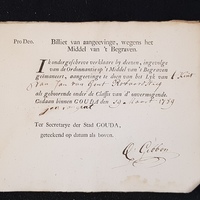 Pro Deo.
Billiet van aangeevinge, wegens het
Middel van 't Begraven.
Ik ondergeschreve verklaare by deezen, ingevolge
van de Ordonnantie op 't Middel van 't Begraven
geëmaneert, aangeevinge te doen van het Lyk van
1 Kint
van Jan van Gent
als gehoorende onder de Classis van d' onvermogende.
Gedaan binnen GOUDA den 22 Maart 1789
Ter Secretarye der Stad GOUDA,
geteekend op datum als boven.